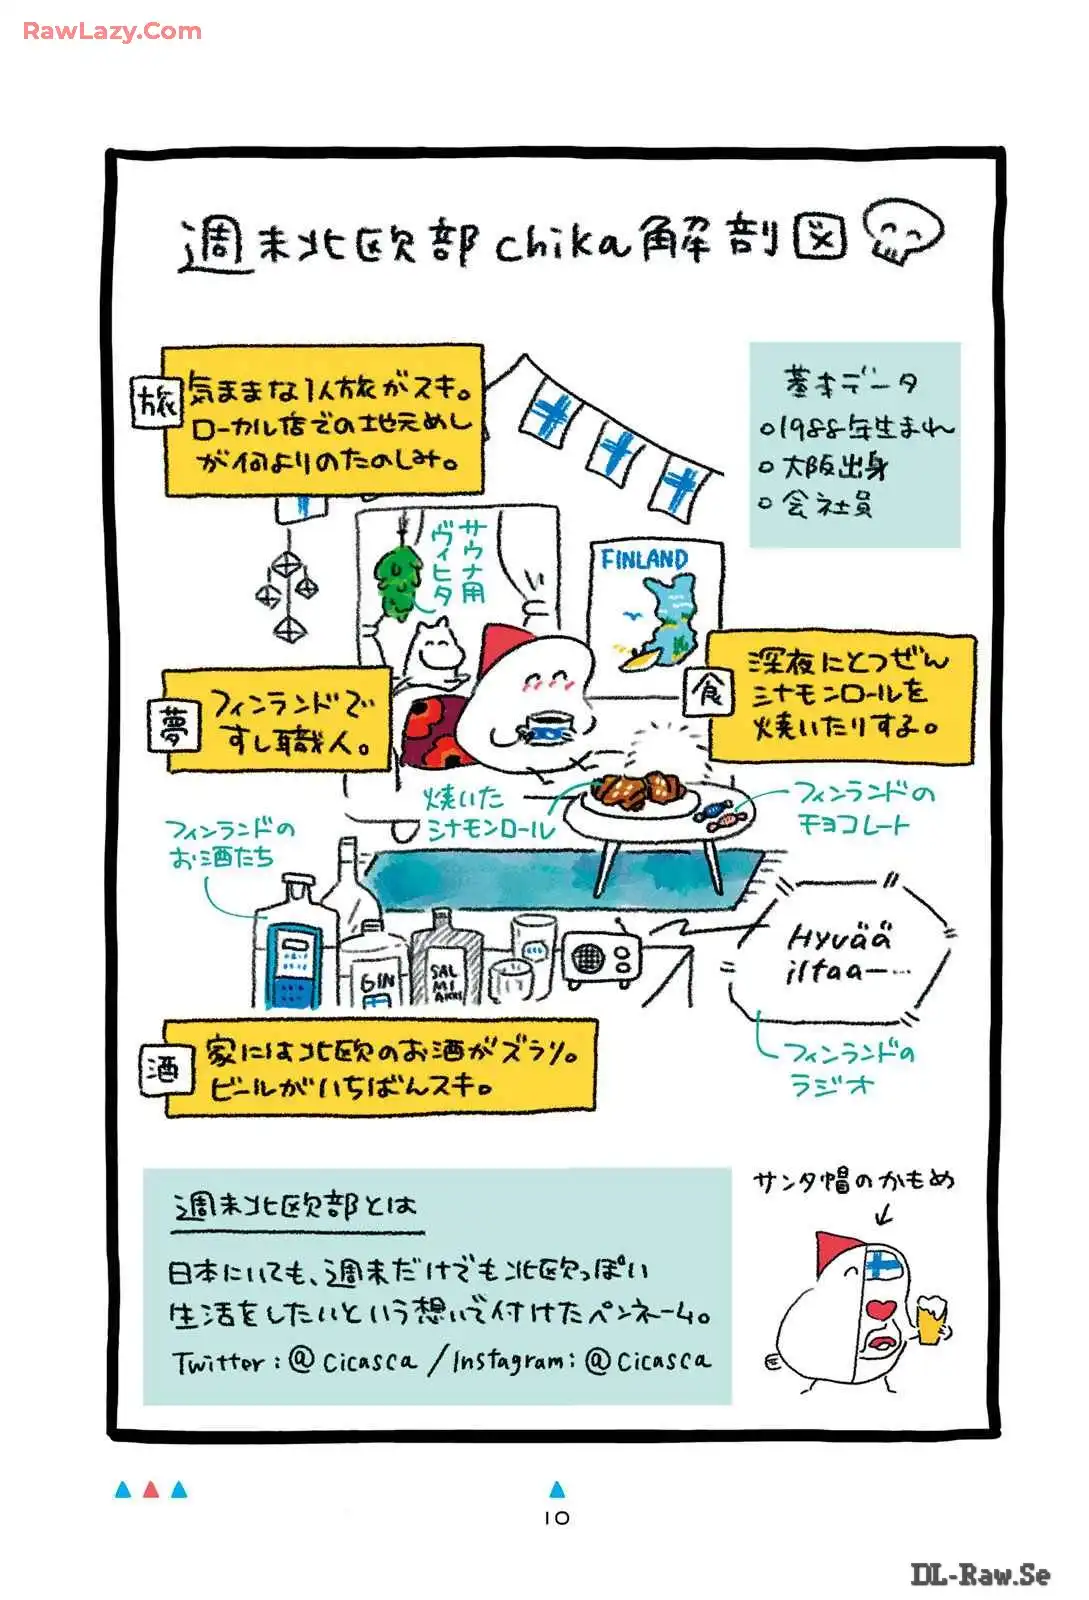 RawLazy.Com
週末北欧部chika解剖図
旅
気ままな1人旅がスキ。
ローカル店での地元めし
が何よりのたのしみ。
基本データ
○1988年生まれ
○大阪出身
○会社員
サウナ用
ヴィヒタ
FINLAND
夢
フィンランドで
すし職人。
食
深夜にとつぜん
シナモンロールを
焼いたりする。
焼いた
シナモンロール
フィンランドの
チョコレート
フィンランドの
お酒たち
GIN
SAL
MI
AKKI
Hyvää
iltaa―…
フィンランドの
ラジオ
酒
家には北欧のお酒がズラリ。
ビールがいちばんスキ。
週末北欧部とは
日本にいても、週末だけでも北欧っぽい
生活をしたいという想いで付けたペンネーム。
Twitter:@cicasca/Instagram:@cicasca
サンタ帽のかもめ
10
DL-Raw.Se